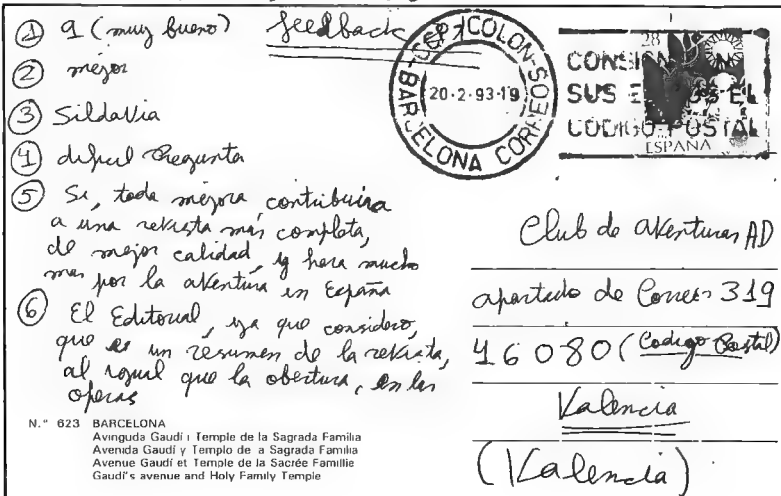 ① 9 (muy bueno) feedback
② mejor
③ Sildavia
④ dificil Pregunta
⑤ Si, toda mejora, contribuira
a una revista más completa,
de mejor calidad, y hara mucho
mas por la aventura en España
⑥ El Editorial, ya que considero,
que es un resumen de la revista,
al igual que la obertura, en las
operas
N.º 623 BARCELONA
Avinguda Gaudí i Temple de la Sagrada Familia
Avenida Gaudí y Templo de a Sagrada Familia
Avenue Gaudí et Temple de la Sacrée Famillie
Gaudí's avenue and Holy Family Temple
COLON-SUC
BARCELONA CORREO
20-2-93-19
28
CONSIGNE EN
SUS EL
CODIGO POSTAL
ESPAÑA
Club de aventuras AD
apartado de Correos 319
46080 (Codigo Postal)
Valencia
(Valencia)